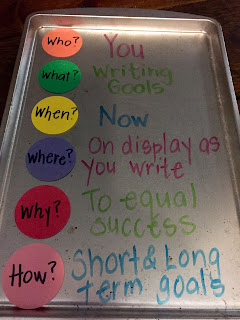 Who? You
What? Writing
Goals
When? Now
Where? On display as
you write
Why? To equal
success
How? Short & Long
term goals